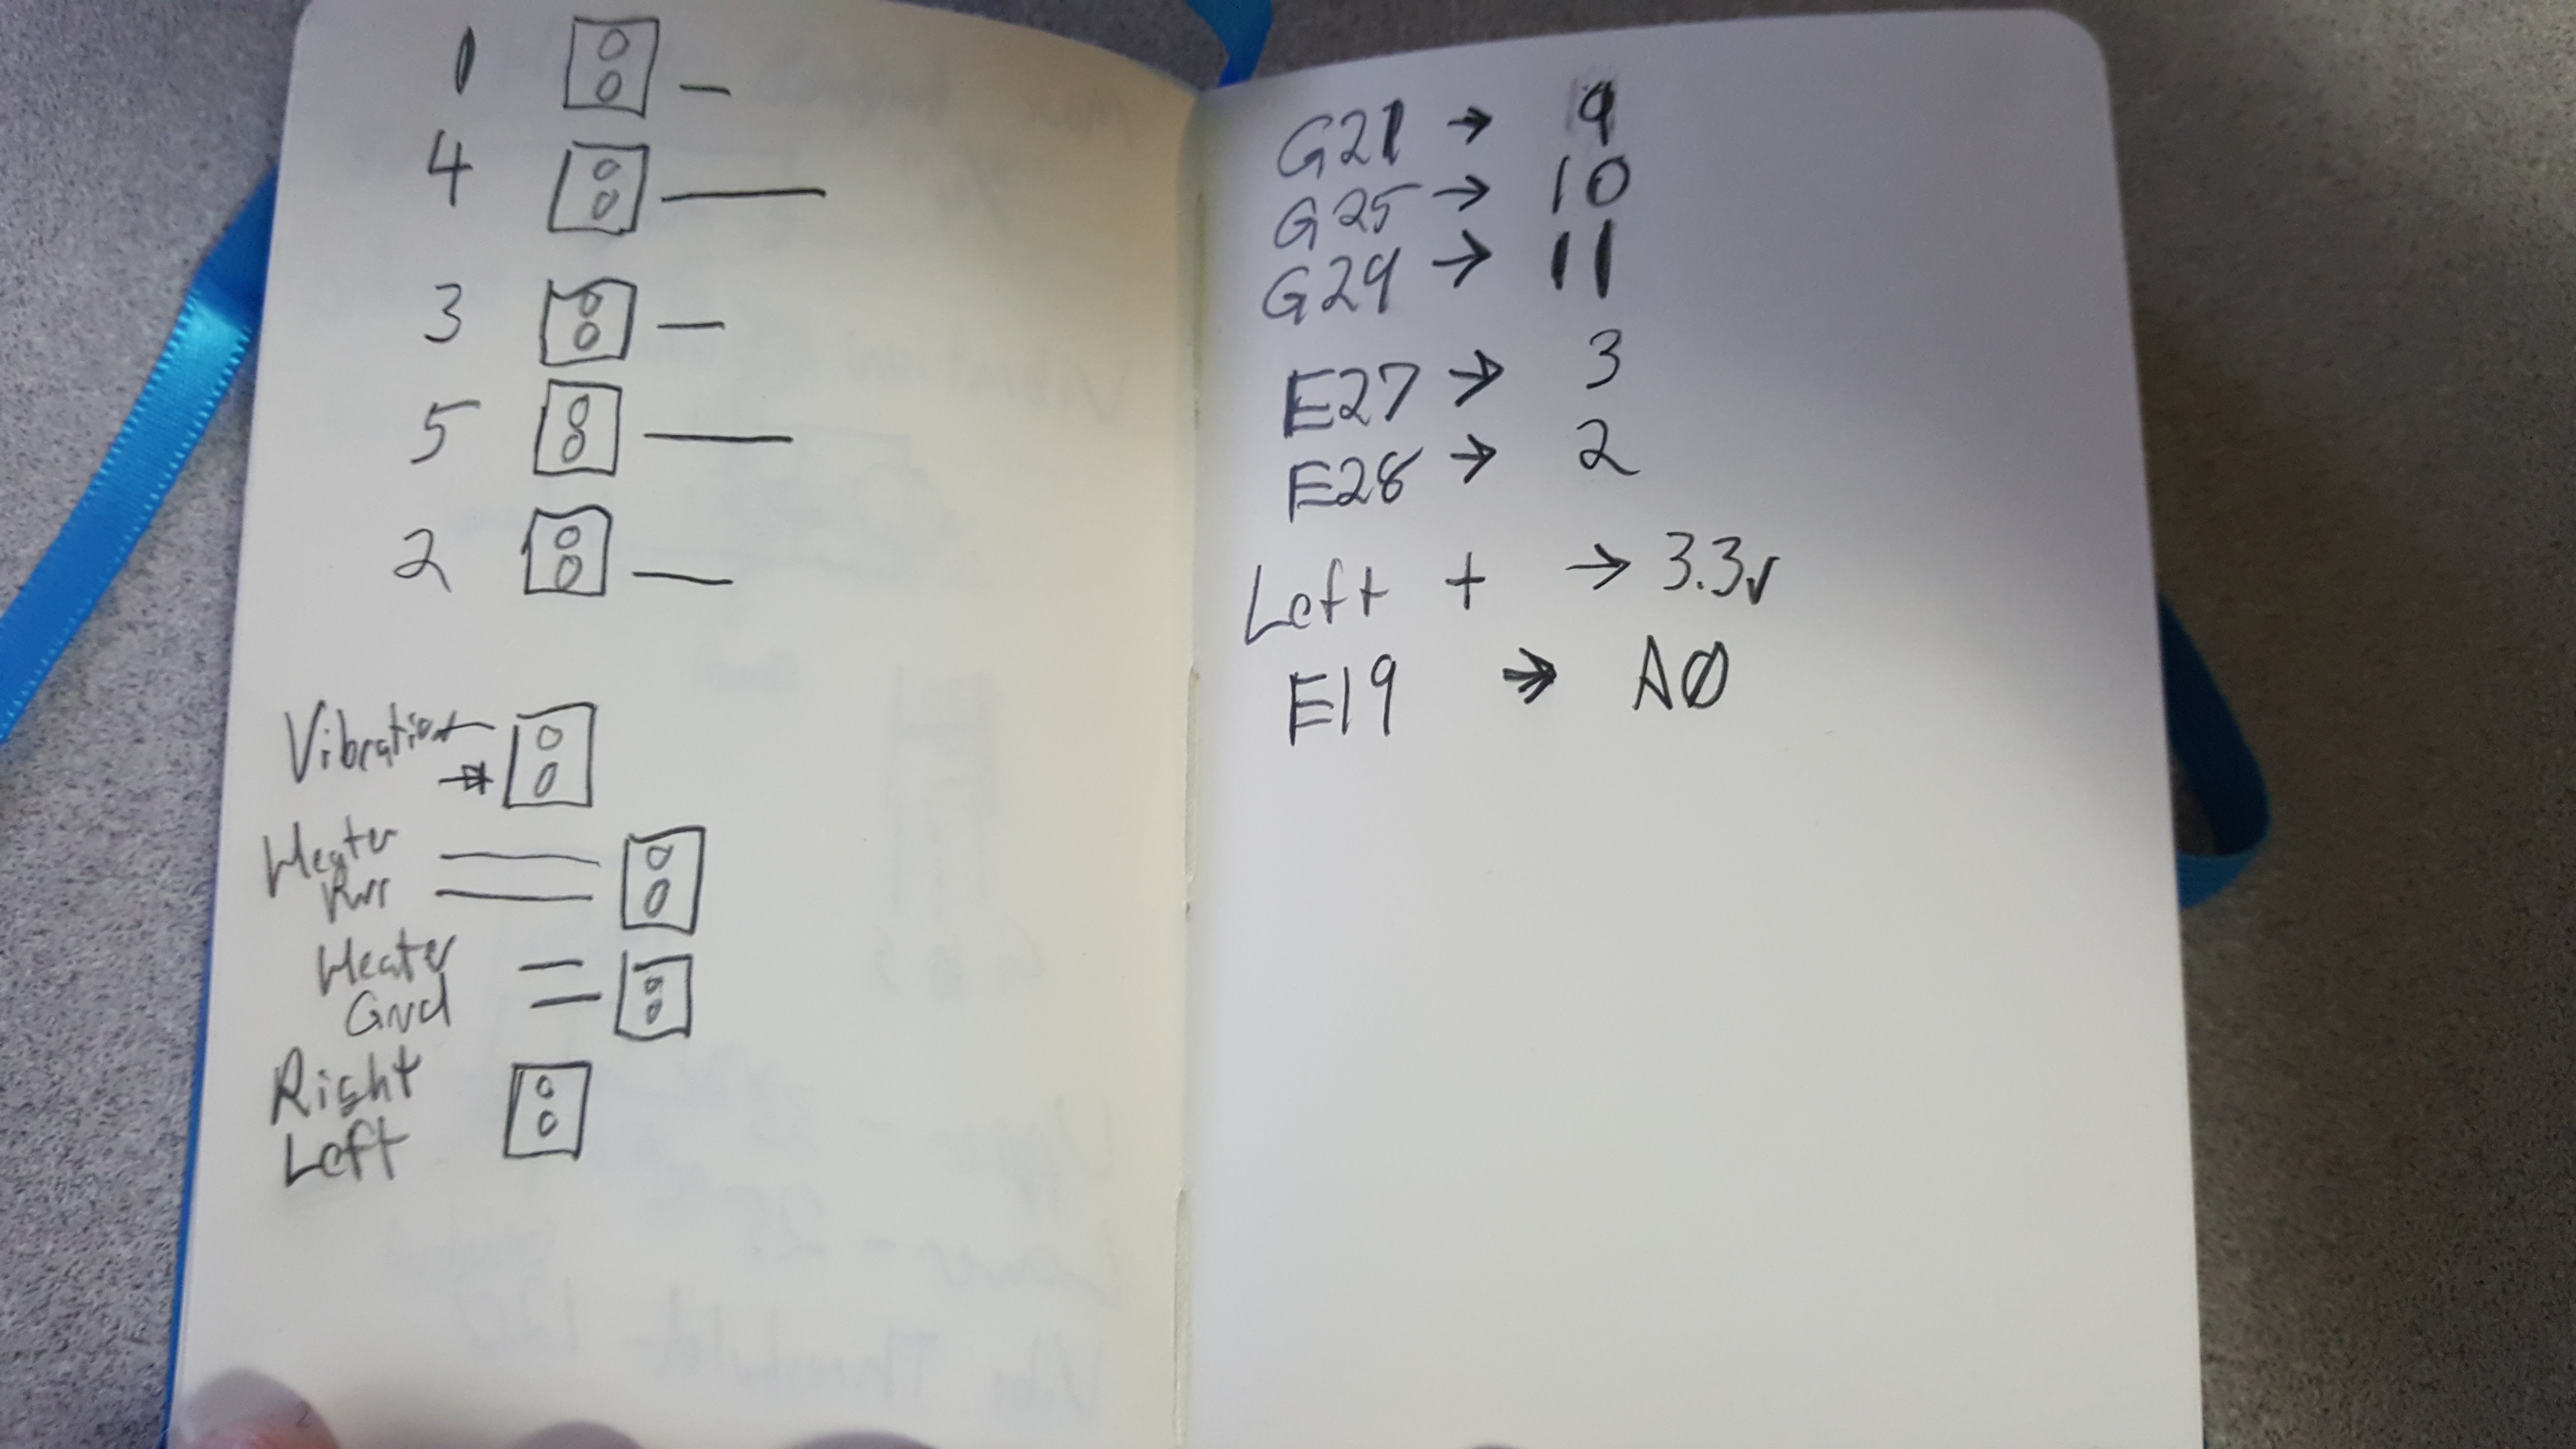 1
4
3
5
2
Vibration
Heater
Pwr
Heater
Gnd
Right
Left
2
G21 → 9
G25 → 10
G29 → 11
E27 → 3
E28 → 2
Left + → 3.3v
E19 → A0